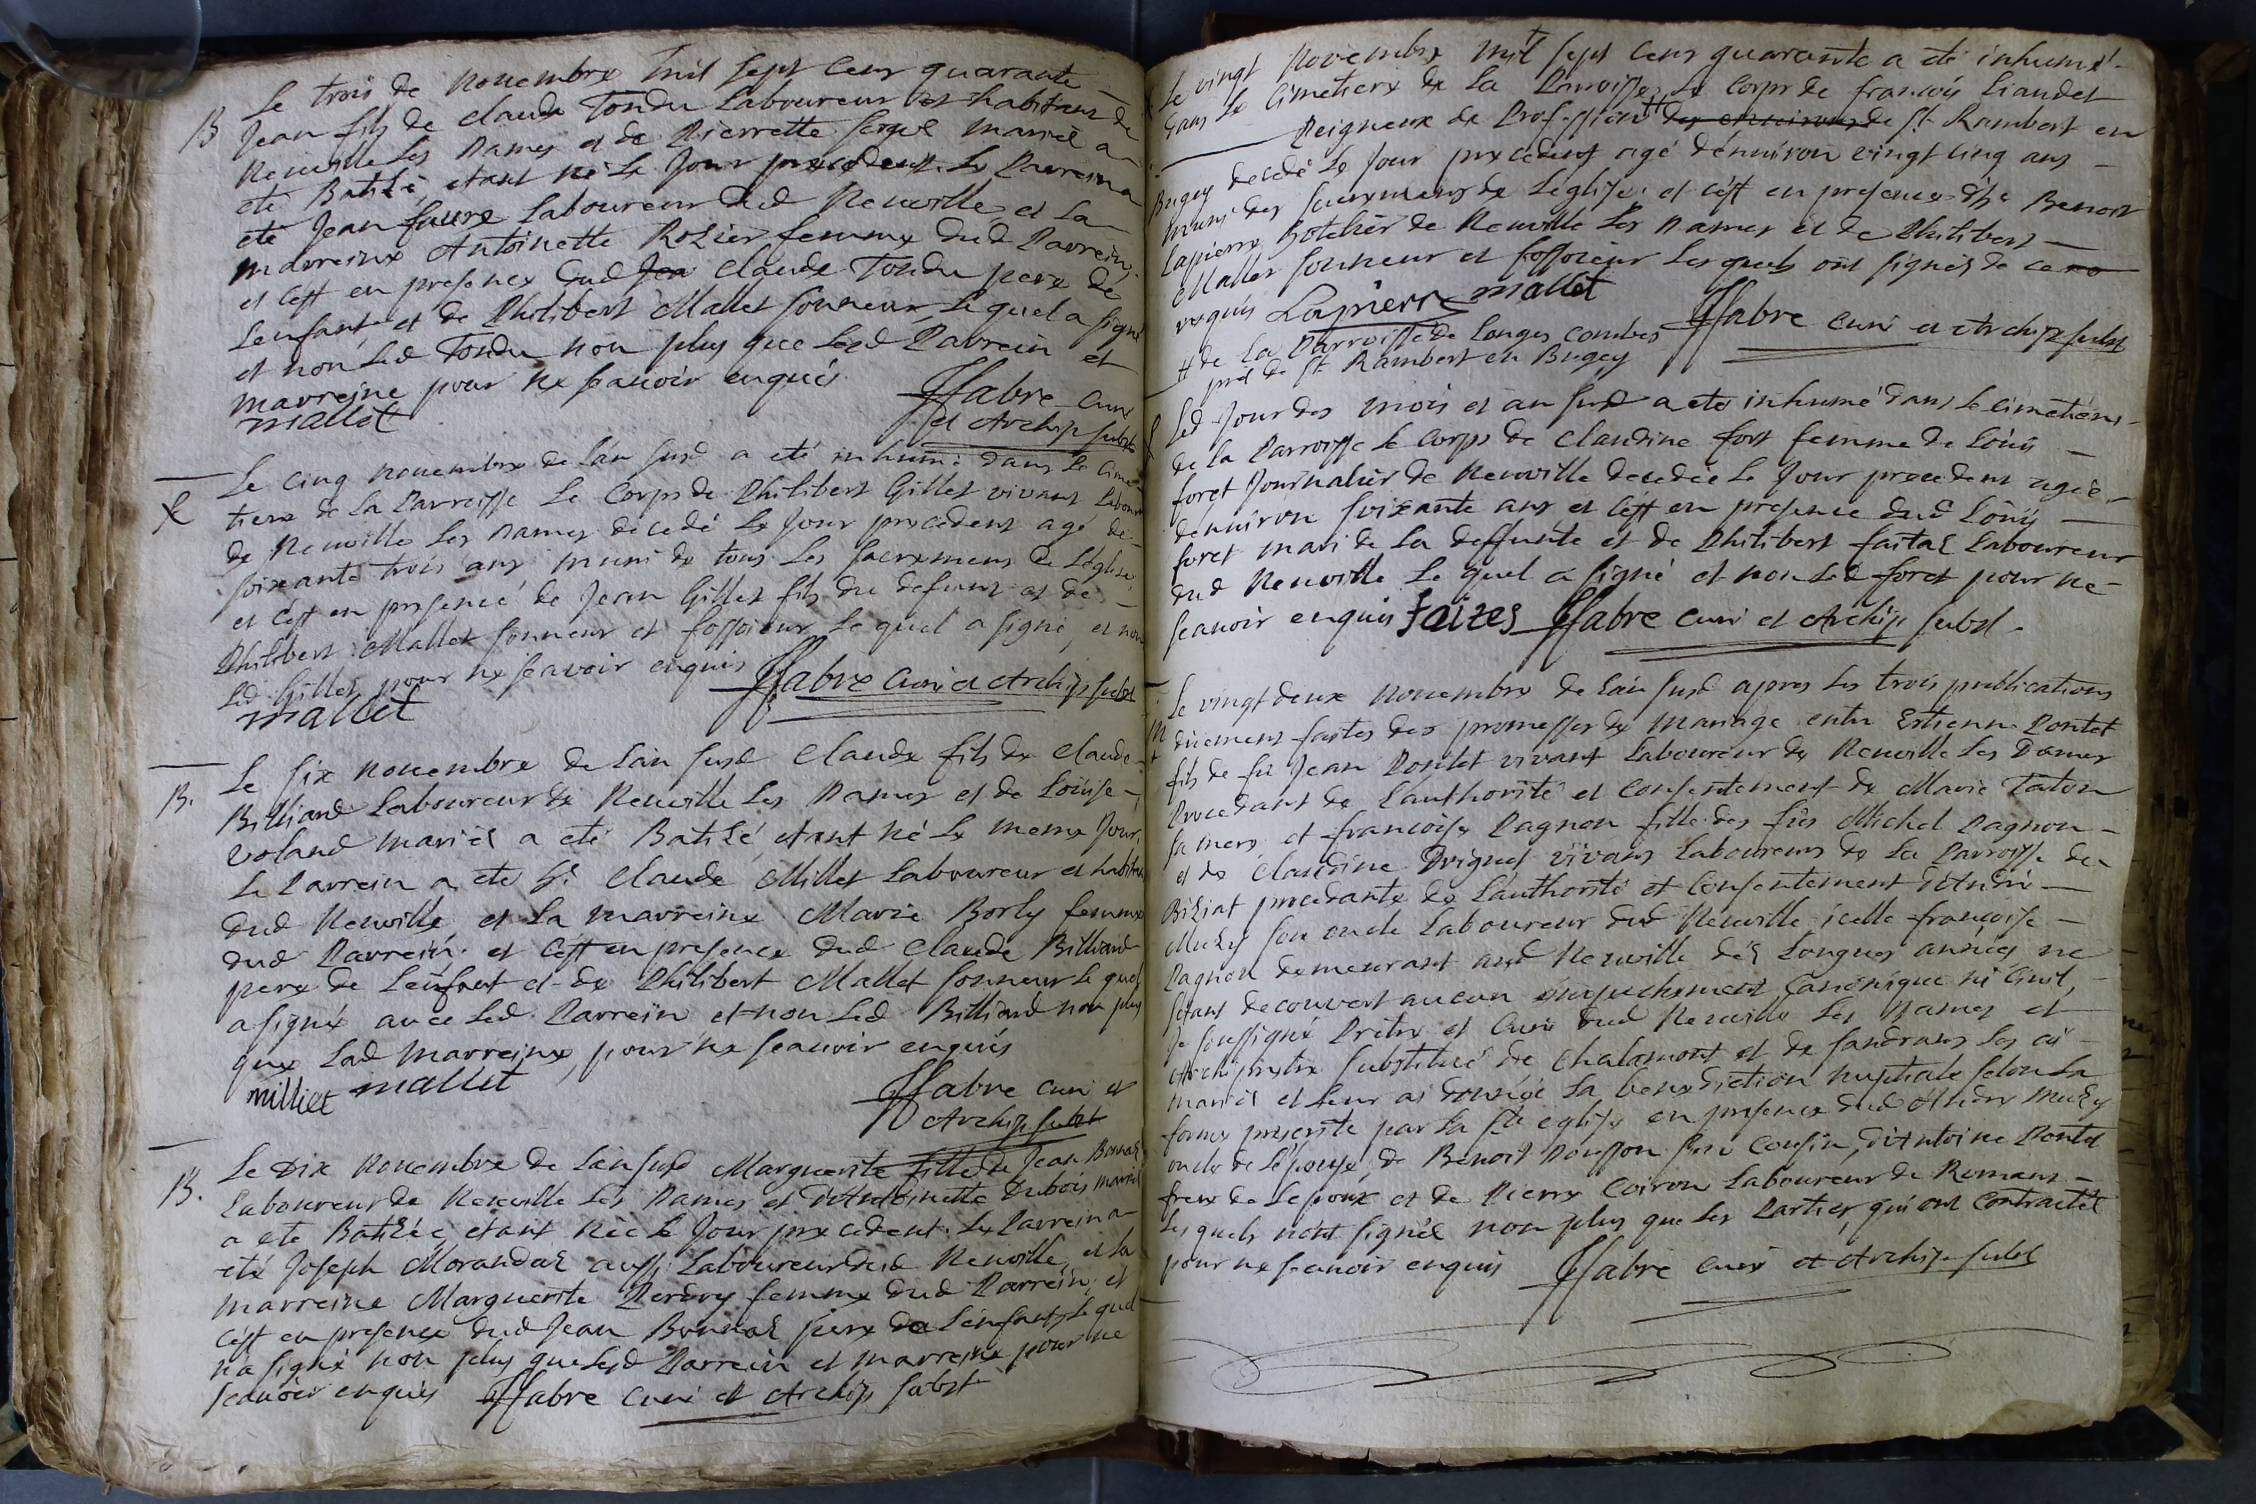 Le trois de Novembre mil sept cens quarante
B Jean fils de claude Tondu Laboureur et habitant de
Neuville les Dames et de Pierrette mariés a
eté Batisé, etant né le Jour precedent. Le Parrein a
eté Jean faure Laboureur dud Neuville, et la
marreine Antoinette Rozier femme dud Parrein,
et c'est en presence dud Jea Claude Tondu pere de
Lenfant, et de Philibert Mallet sonneur, le quel a signé
et non led Tondu non plus que lesd Parrein et
marreine pour ne scauoir enquis
mallet ffabre curé
et Archip subst
Le cinq nouembre de l'an susd a eté inhumé dans le cime-
tiere de la Parroisse le Corps de Philibert Gillet vivant Labour
de Neuville les Dames decedé le Jour precedent agé de
soixante trois ans muni de tous les sacremens de l'eglise
et c'est en presence de Jean Gillet fils du defunt et de
Philibert Mallet sonneur et fossoieur le quel a signé, et non
led Gillet pour ne scavoir enquis ffabre curé et Archip subst
mallet
Le six nouembre de l'an susd Claude fils de Claude
B. Billiand Laboureur de Neuville les Dames et de Loüise
Voland mariés a eté Batisé, etant né le meme Jour,
Le Parrein a eté Sr Claude Milliet Laboureur et habitant
dud Neuville et la marreine Marie Borly femme
dud Parrein, et c'est en presence dud Claude Billiand
pere de Lenfant et de Philibert Mallet sonneur le quel
a signé avec led Parrein et non led Billiand non plus
que lad marreine, pour ne scauoir enquis
milliet mallet ffabre curé et
Archip subst
Le Dix Nouembre de l'an susd Marguerite fille de Jean Bonnas
B. Laboureur de Neuville les Dames et d'Antoinette Dubois mariés
a eté Batisée, etant née le Jour precedent. Le Parrein a
eté Joseph Morandas aussi Laboureur dud Neuville, et la
marreine Marguerite Perdry femme dud Parrein, et
c'est en presence dud Jean Bonnas pere de l'enfant, le quel
n'a signé non plus que lesd Parrein et marreine pour ne
scauoir enquis ffabre curé et Archip subst
Le vingt Novembre mil sept cens quarante a eté inhumé
dans le Cimetiere de la Parroisse le Corps de francois Liaudet
Peigneur de Profession # de St Rambert en
Bugey decedé le Jour precedent agé d'enuiron vingt cinq ans
muni des sacremens de L'eglise, et c'est en presence de Sr Benoit
Lapierre hotelier de Neuville les Dames et de Philibert
Mallet sonneur et fossoieur les quels ont signés de ce
requis Lapierre mallet ffabre curé et Archip subst
# de la Parroisse de Longes Combes
pres de St Rambert en Bugey
Led Jour des mois et an susd a eté inhumé dans le cimetiere
de la Parroisse le Corps de Claudine fort femme de Loüis
foret Journalier de Neuville decedée le Jour precedent agée
denuiron soixante ans et c'est en presence dud Loüis
foret mari de la deffunte et de Philibert faitas Laboureur
dud Neuville le quel a signé et non led foret pour ne
scauoir enquis faites ffabre curé et Archip subst.
Le vingt deux nouembre de l'an susd apres les trois publications
M duement faites des promesses de mariage entre Estienne Pontet
fils de fu Jean Pontet vivant Laboureur de Neuville les Dames
Procedant de Lauthorité et consentement de Marie Taton
sa mere, et francoise Pagnon fille des fûs Michel Pagnon
et de Claudine vivans Laboureurs de la Parroisse de
Biziat procedante de Lauthorité et Consentement d'André
Muzy son oncle Laboureur dud Neuville, icelle francoise
Pagnon demeurant aud Neuville dés Longues années ne
setant decouvert aucun empechement Canonique ni Civil,
Je soussigné Prêtre et Curé dud Neuville les Dames et
Archiprêtre substitué de Chalamont et de sandrans les ai
mariés et leur ai donnée la benediction nuptiale selon la
forme prescrite par la Ste eglise en presence dud André Muzy
oncle de L'epouse, de Benoit son Cousin, d'Antoine Pontet
frere de Lepoux et de Pierre Coiron Laboureur de Romans
les quels n'ont signés non plus que les Parties qui ont contractés
pour ne scauoir enquis ffabre curé et Archip subst